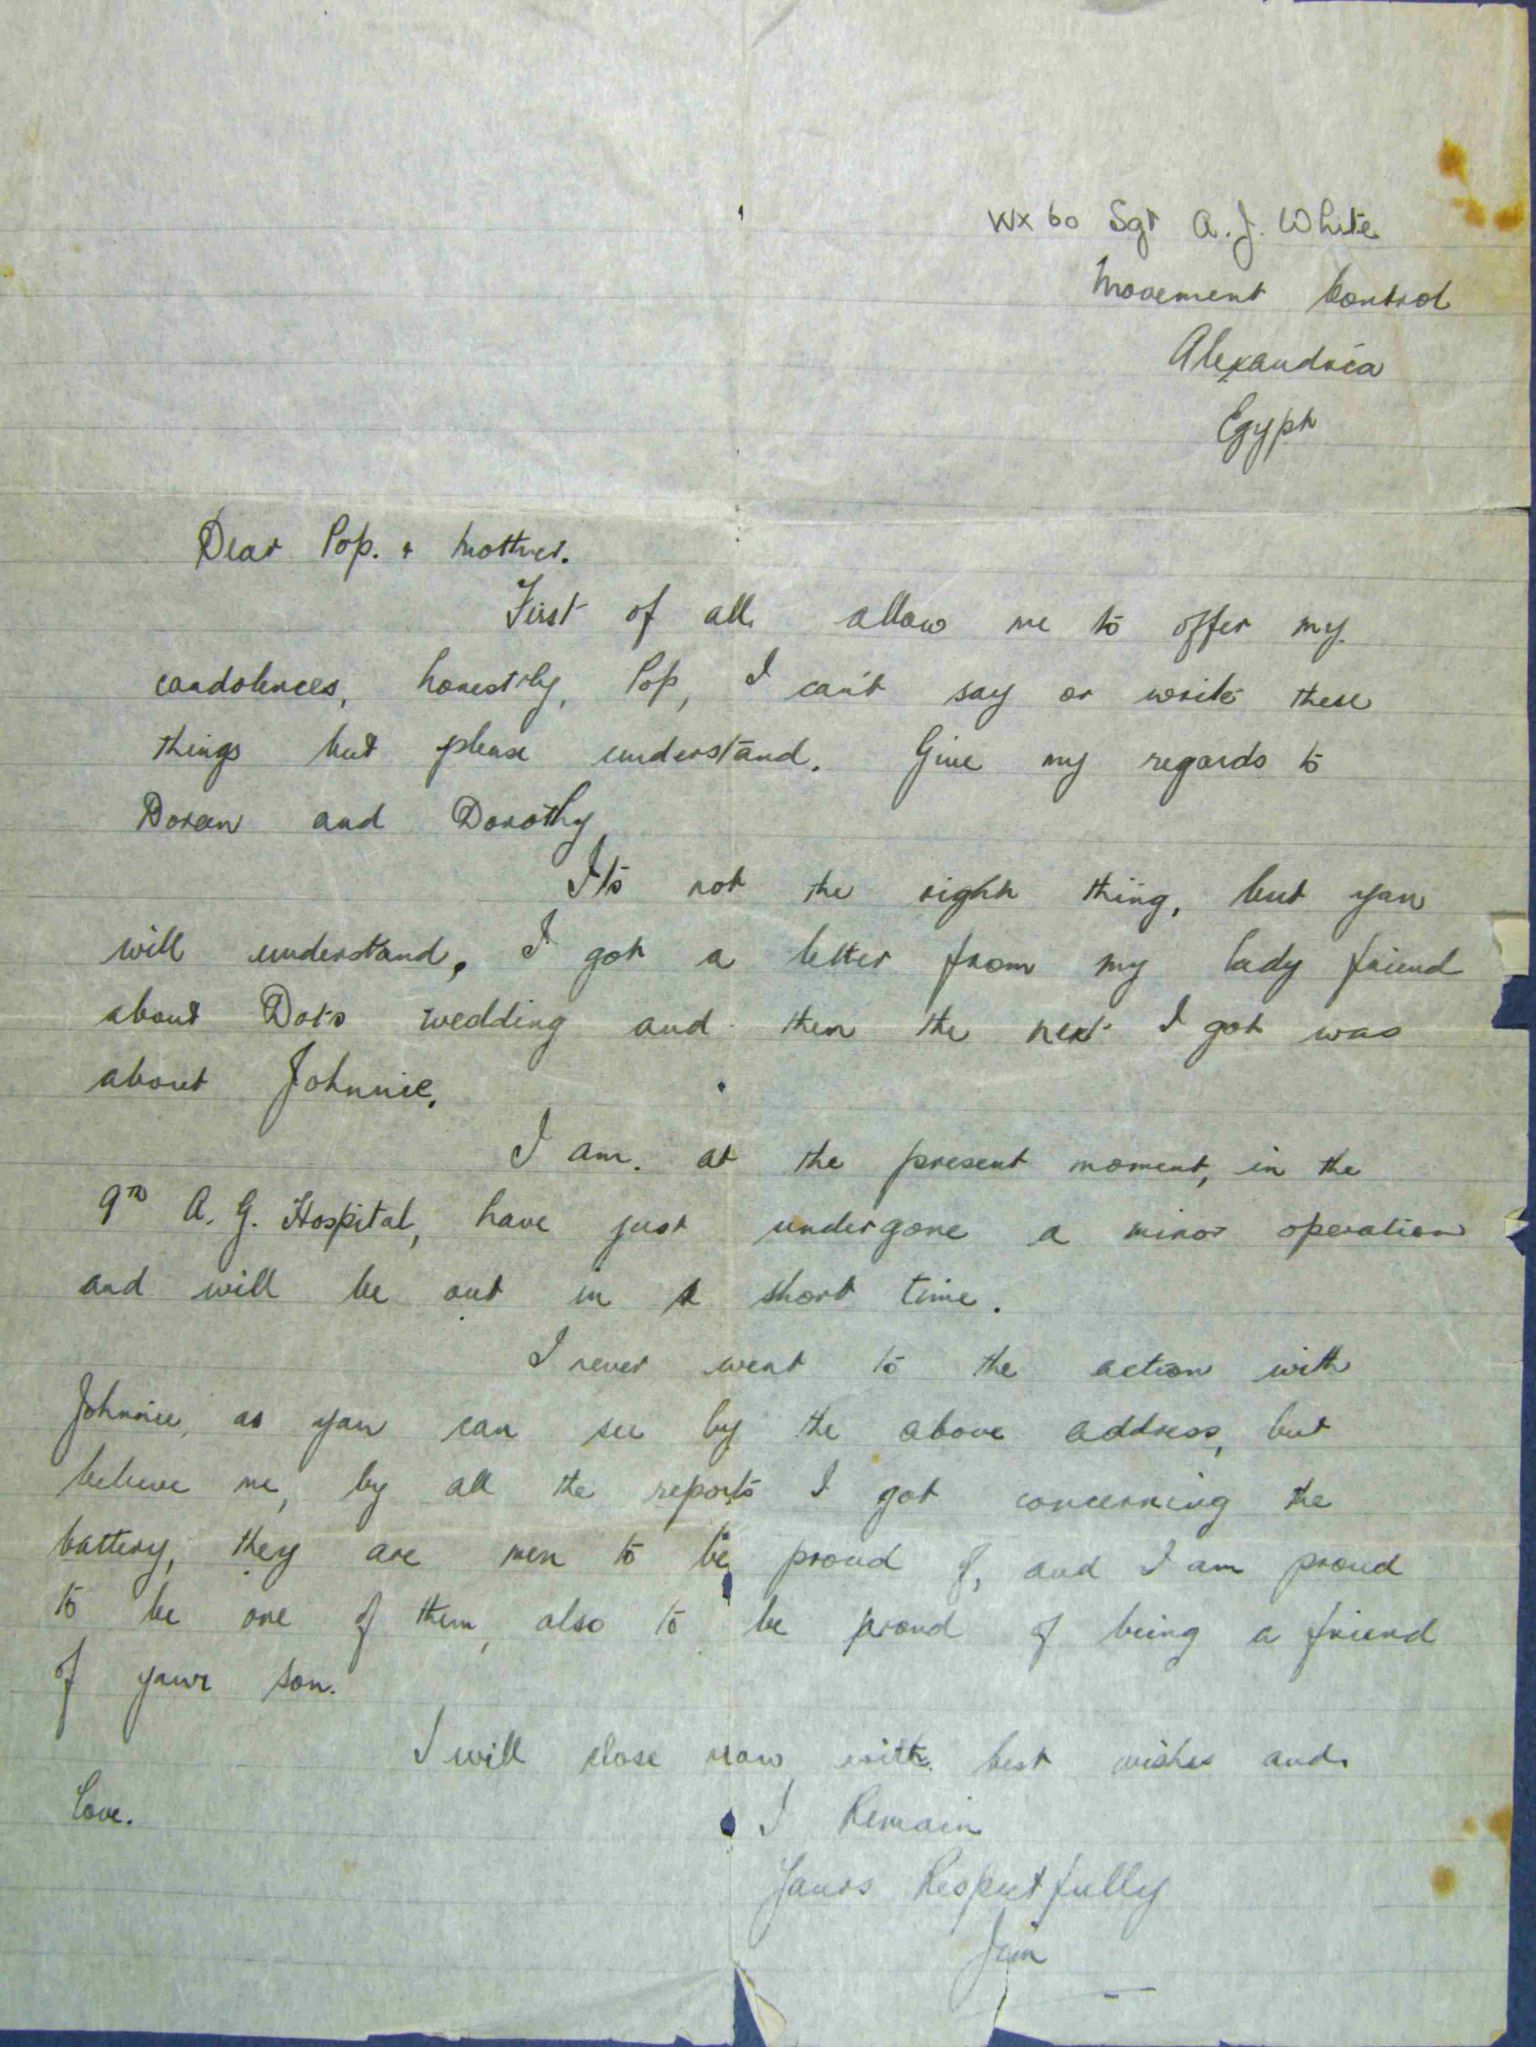 WX 60 Sgt A. J. White
Movement Control
Alexandria
Egypt
Dear Pop. + Mother.
First of all allow me to offer my
condolences, honestly, Pop, I can't say or write these
things but please understand. Give my regards to
Doreen and Dorothy
It's not the right thing, but you
will understand, I got a letter from my lady friend
about Dot's wedding and then the next I got was
about Johnnie.
I am. at the present moment, in the
9th A. G. Hospital, have just undergone a minor operation
and will be out in a short time.
I never went to the action with
Johnnie, as you can see by the above address, but
believe me, by all the reports I got concerning the
battery, they are men to be proud of, and I am proud
to be one of them, also to be proud of being a friend
of your son.
I will close now with best wishes and
Love.
I Remain
Yours Respectfully
Jim